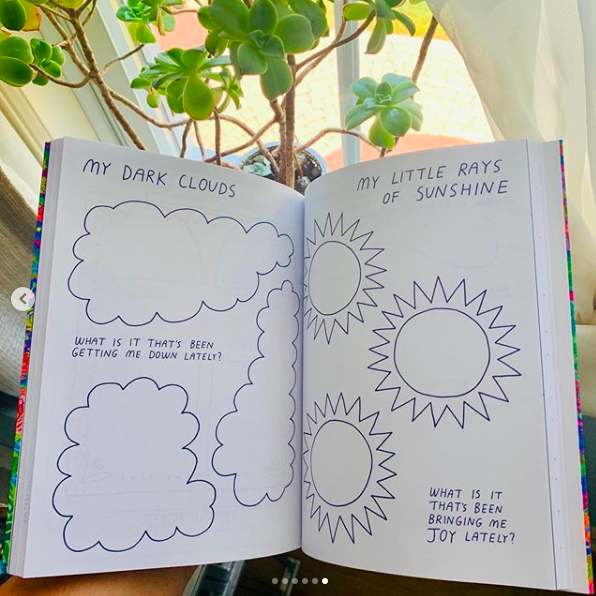 MY DARK CLOUDS
WHAT IS IT THAT'S BEEN
GETTING ME DOWN LATELY?
MY LITTLE RAYS
OF SUNSHINE
WHAT IS IT
THAT'S BEEN
BRINGING ME
JOY LATELY?